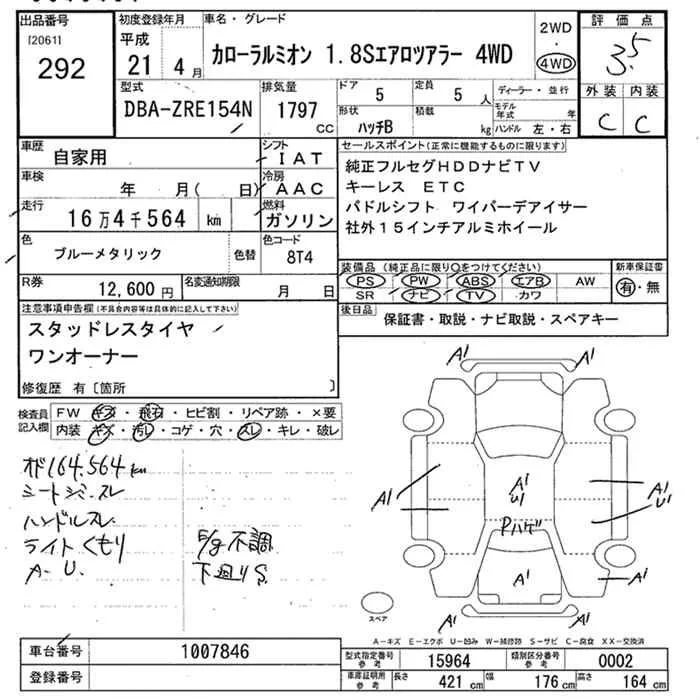 出品番号 初度登録年月 車名・グレード 2WD 評価点
[2061] 平成 ・
292 21 4月 カローラルミオン 1.8Sエアロツアラー 4WD 4WD 3.5
型式 排気量 ドア 5 定員 5人 ディーラー・並行 外装 内装
DBA-ZRE154N 1797 CC 形状 ハッチB 積載 kg モデル年式 年 C C
ハンドル 左・右
車歴 自家用 シフト IAT セールスポイント(正常に機能するものに限ります)
車検 年 月( 日) 冷房 AAC 純正フルセグHDDナビTV
キーレス ETC
走行 16万4千564 km 燃料 ガソリン パドルシフト ワイパーデアイサー
社外15インチアルミホイール
色 ブルーメタリック 色替 色コード 8T4
R券 12,600円 名変通知期限 月 日 装備品(純正品に限り○をつけてください) 新車保証書
PS PW ABS エアB AW 有・無
SR ナビ TV カワ
注意事項申告欄(不具合内容等は具体的に記入して下さい) 後日品 保証書・取説・ナビ取説・スペアキー
スタッドレスタイヤ
ワンオーナー
修復歴 有〔箇所 〕
検査員記入欄 FW キズ・飛石・ヒビ割・リペア跡・×要
内装 キズ・汚レ・コゲ・穴・スレ・キレ・破レ
オド164.564km
シートジ・スレ
ハンドルスレ
ライトくもり E/g不調
A-U. 下廻りS
A1 A1
A1
A1 U1 A1 U1
Pハゲ
A1 A1
A1 A1
スペア
A-キズ E-エクボ U-凹み W-補修跡 S-サビ C-腐食 XX-交換済
車台番号 1007846 型式指定番号 参考 15964 類別区分番号 参考 0002
登録番号 車庫証明用 参考 長さ 421cm 幅 176cm 高さ 164cm